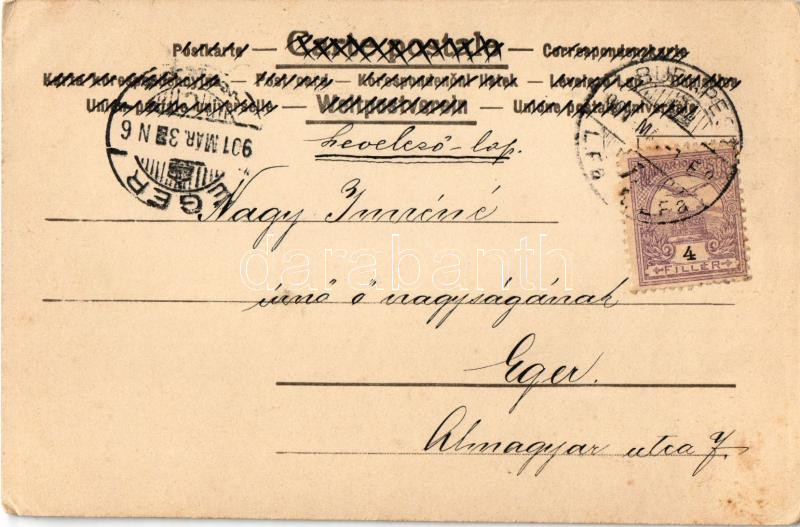 Postkarte — Carte postale — Correspondenzkarte
Karta korespondencyjna — Post card — Korespondenční lístek — Levelező-Lap
Union postale universelle — Weltpostverein — Unione postale universale
levelező-lap.
901 MAR. 3 N 6
EGER
BUDAPEST
Nagy Imréné
úrnő ő nagyságának
Eger.
Almagyar utca 7.
4
FILLÉR
darabanth